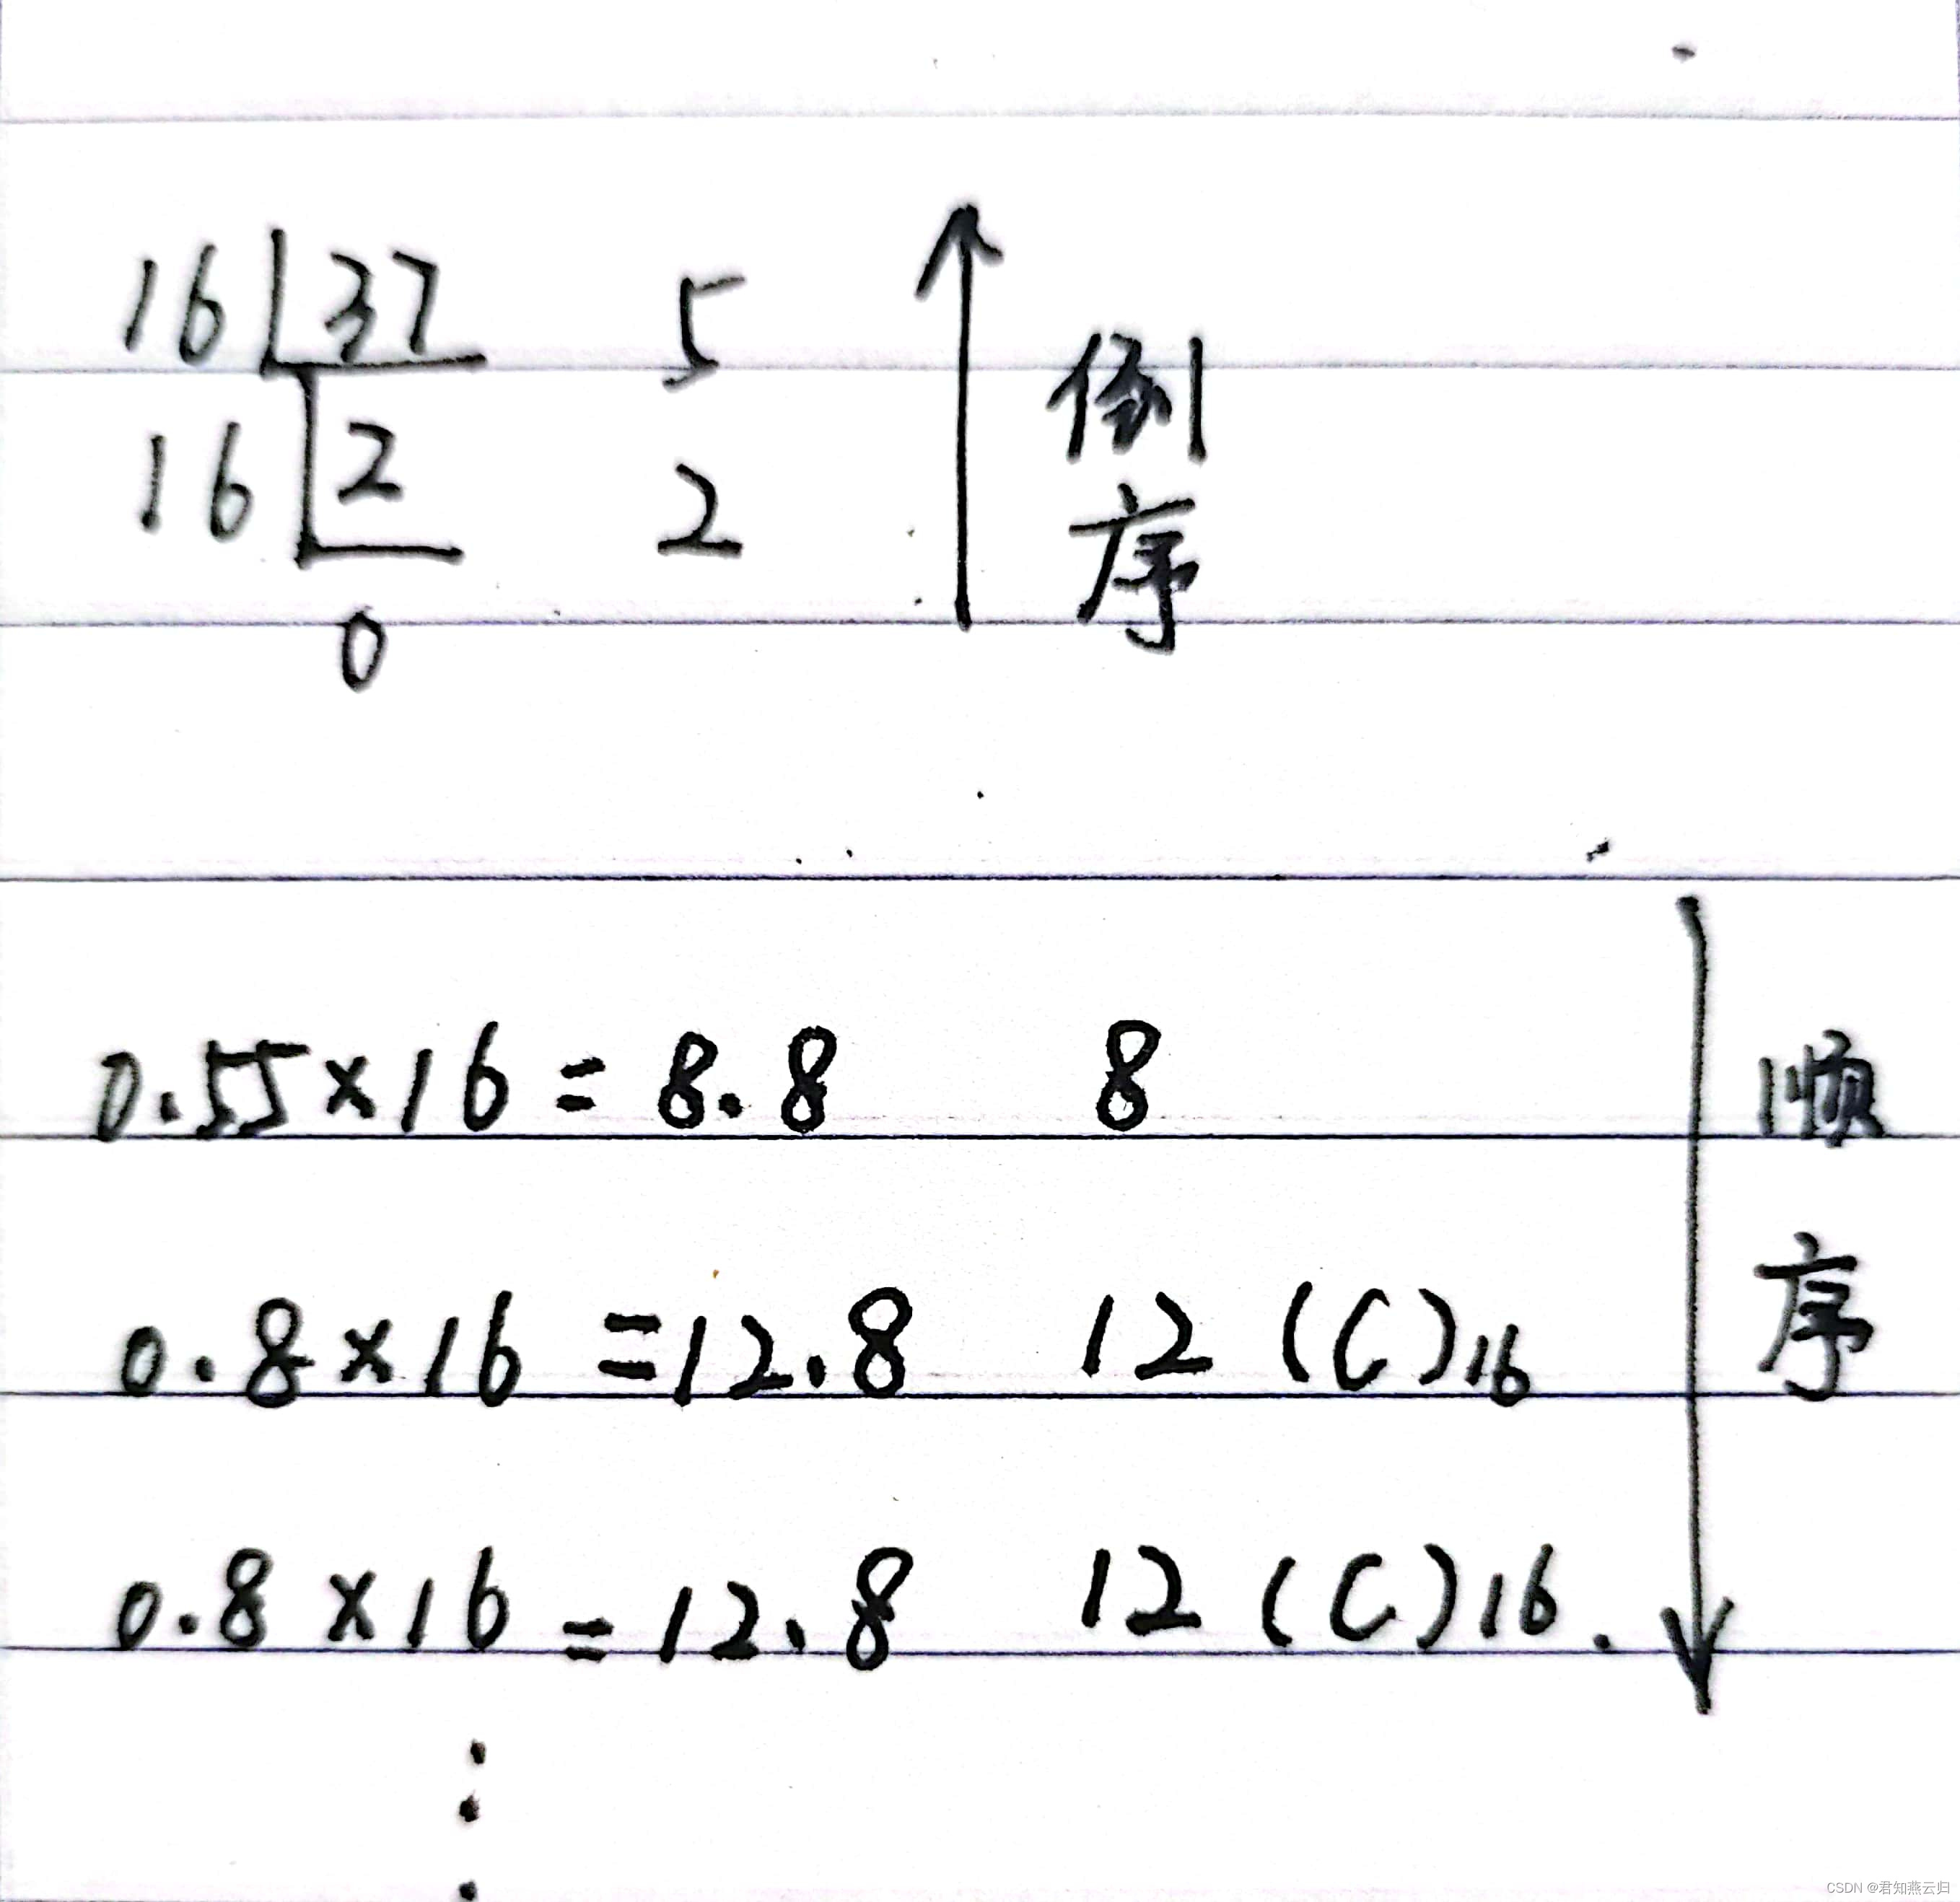 16 37 5
16 2 2
0
倒
序
0.55×16=8.8 8
0.8×16=12.8 12 (C)16
0.8×16=12.8 12 (C)16.
顺
序
CSDN @君知燕云归